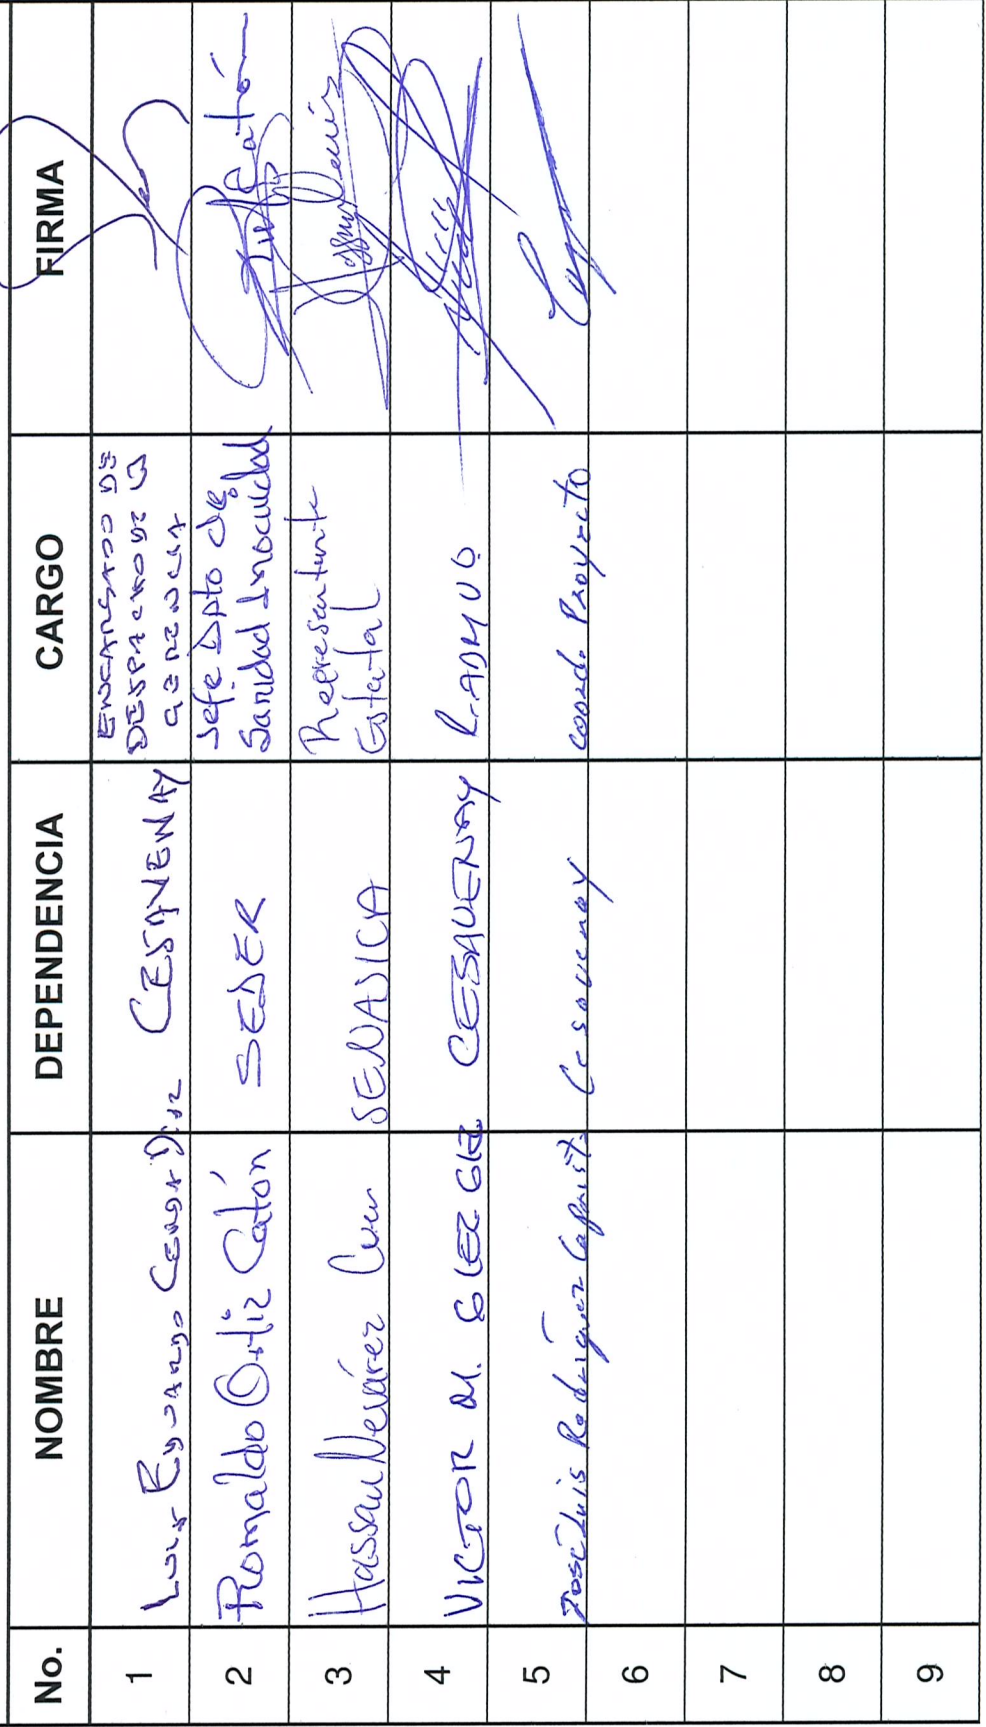 No. NOMBRE DEPENDENCIA CARGO FIRMA
1 Luis Eduardo Cerda Diaz CESAVENAY ENCARGADO DE
DESPACHO DE LA
GERENCIA
2 Romaldo Ortiz Catón SEDER Jefe Dpto de
Sanidad Inocuidad Catón
3 Hassan Nevárez SENASICA Representante
Estatal
4 VICTOR M. GLEZ GLEZ CESAVENAY R-ADMVO
5 José Luis Rodriguez Cesavenay Coord. Proyecto
6
7
8
9